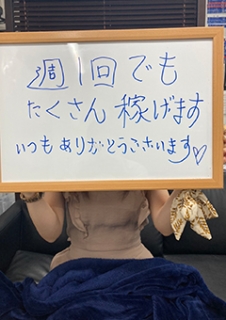 週1回でも
たくさん稼げます
いつもありがとうございます♡